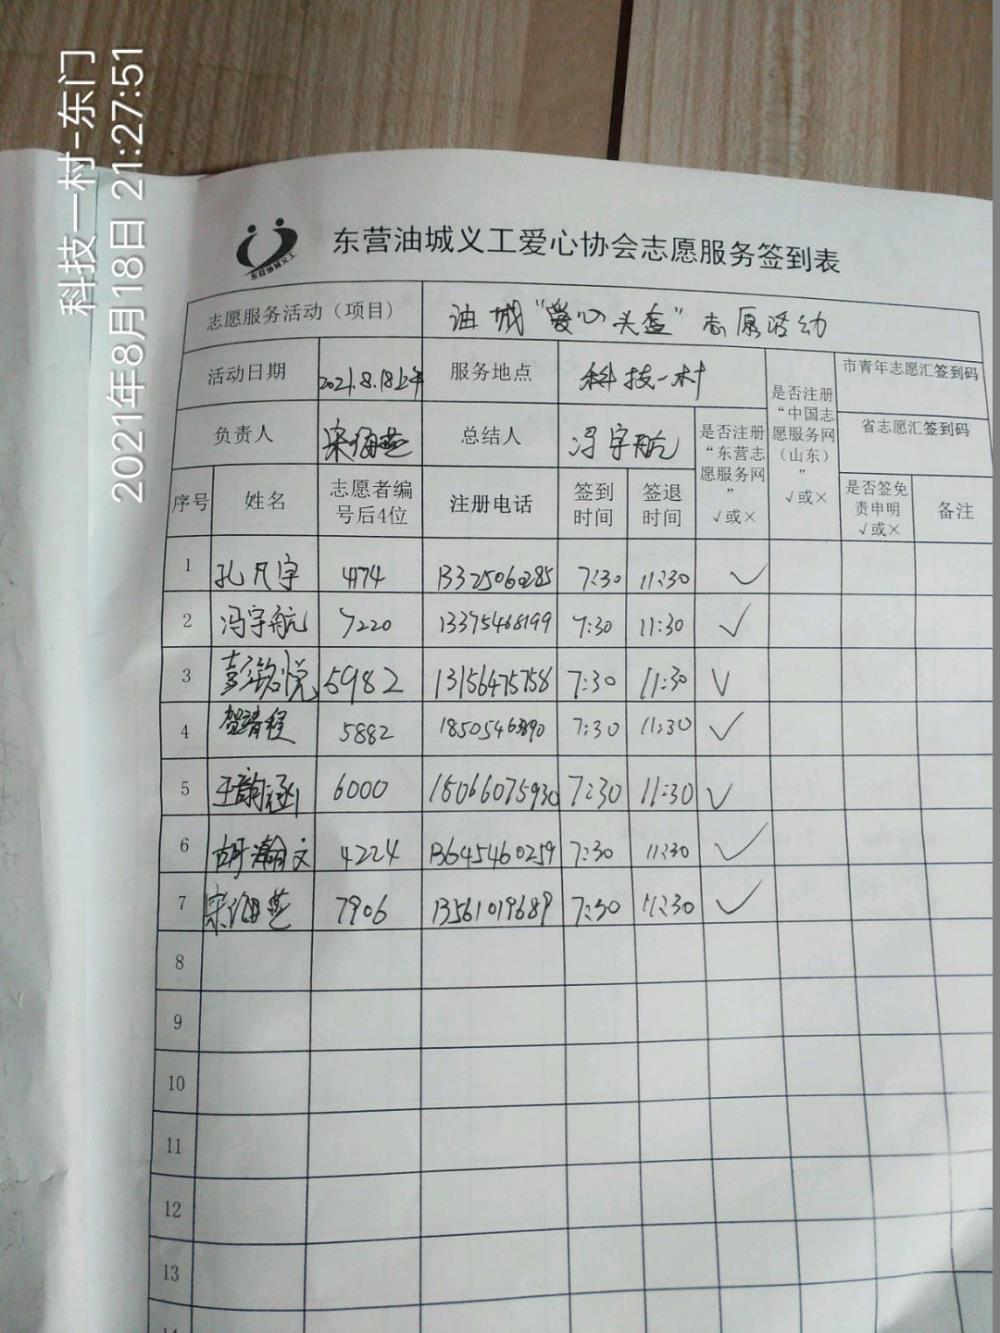 科技一村-东门
2021年8月18日 21:27:51
东营油城义工
东营油城义工爱心协会志愿服务签到表
志愿服务活动（项目） 油城“爱心头盔”志愿活动
活动日期 2021.8.18上午 服务地点 科技一村 是否注册“中国志愿服务网（山东）” √或× 市青年志愿汇签到码
负责人 宋海燕 总结人 冯宇航 是否注册“东营志愿服务网” √或× 省志愿汇签到码
序号 姓名 志愿者编号后4位 注册电话 签到时间 签退时间 是否签免责申明 √或× 备注
1 孔凡宇 4174 13325060285 7:30 11:30 √
2 冯宇航 7220 13375468199 7:30 11:30 √
3 彭铭悦 5982 13156475758 7:30 11:30 √
4 贺靖程 5882 18505463890 7:30 11:30 √
5 王韵涵 6000 15066075930 7:30 11:30 √
6 胡瀚文 4224 13645460259 7:30 11:30 √
7 宋海燕 7906 13561019689 7:30 11:30 √
8
9
10
11
12
13
14